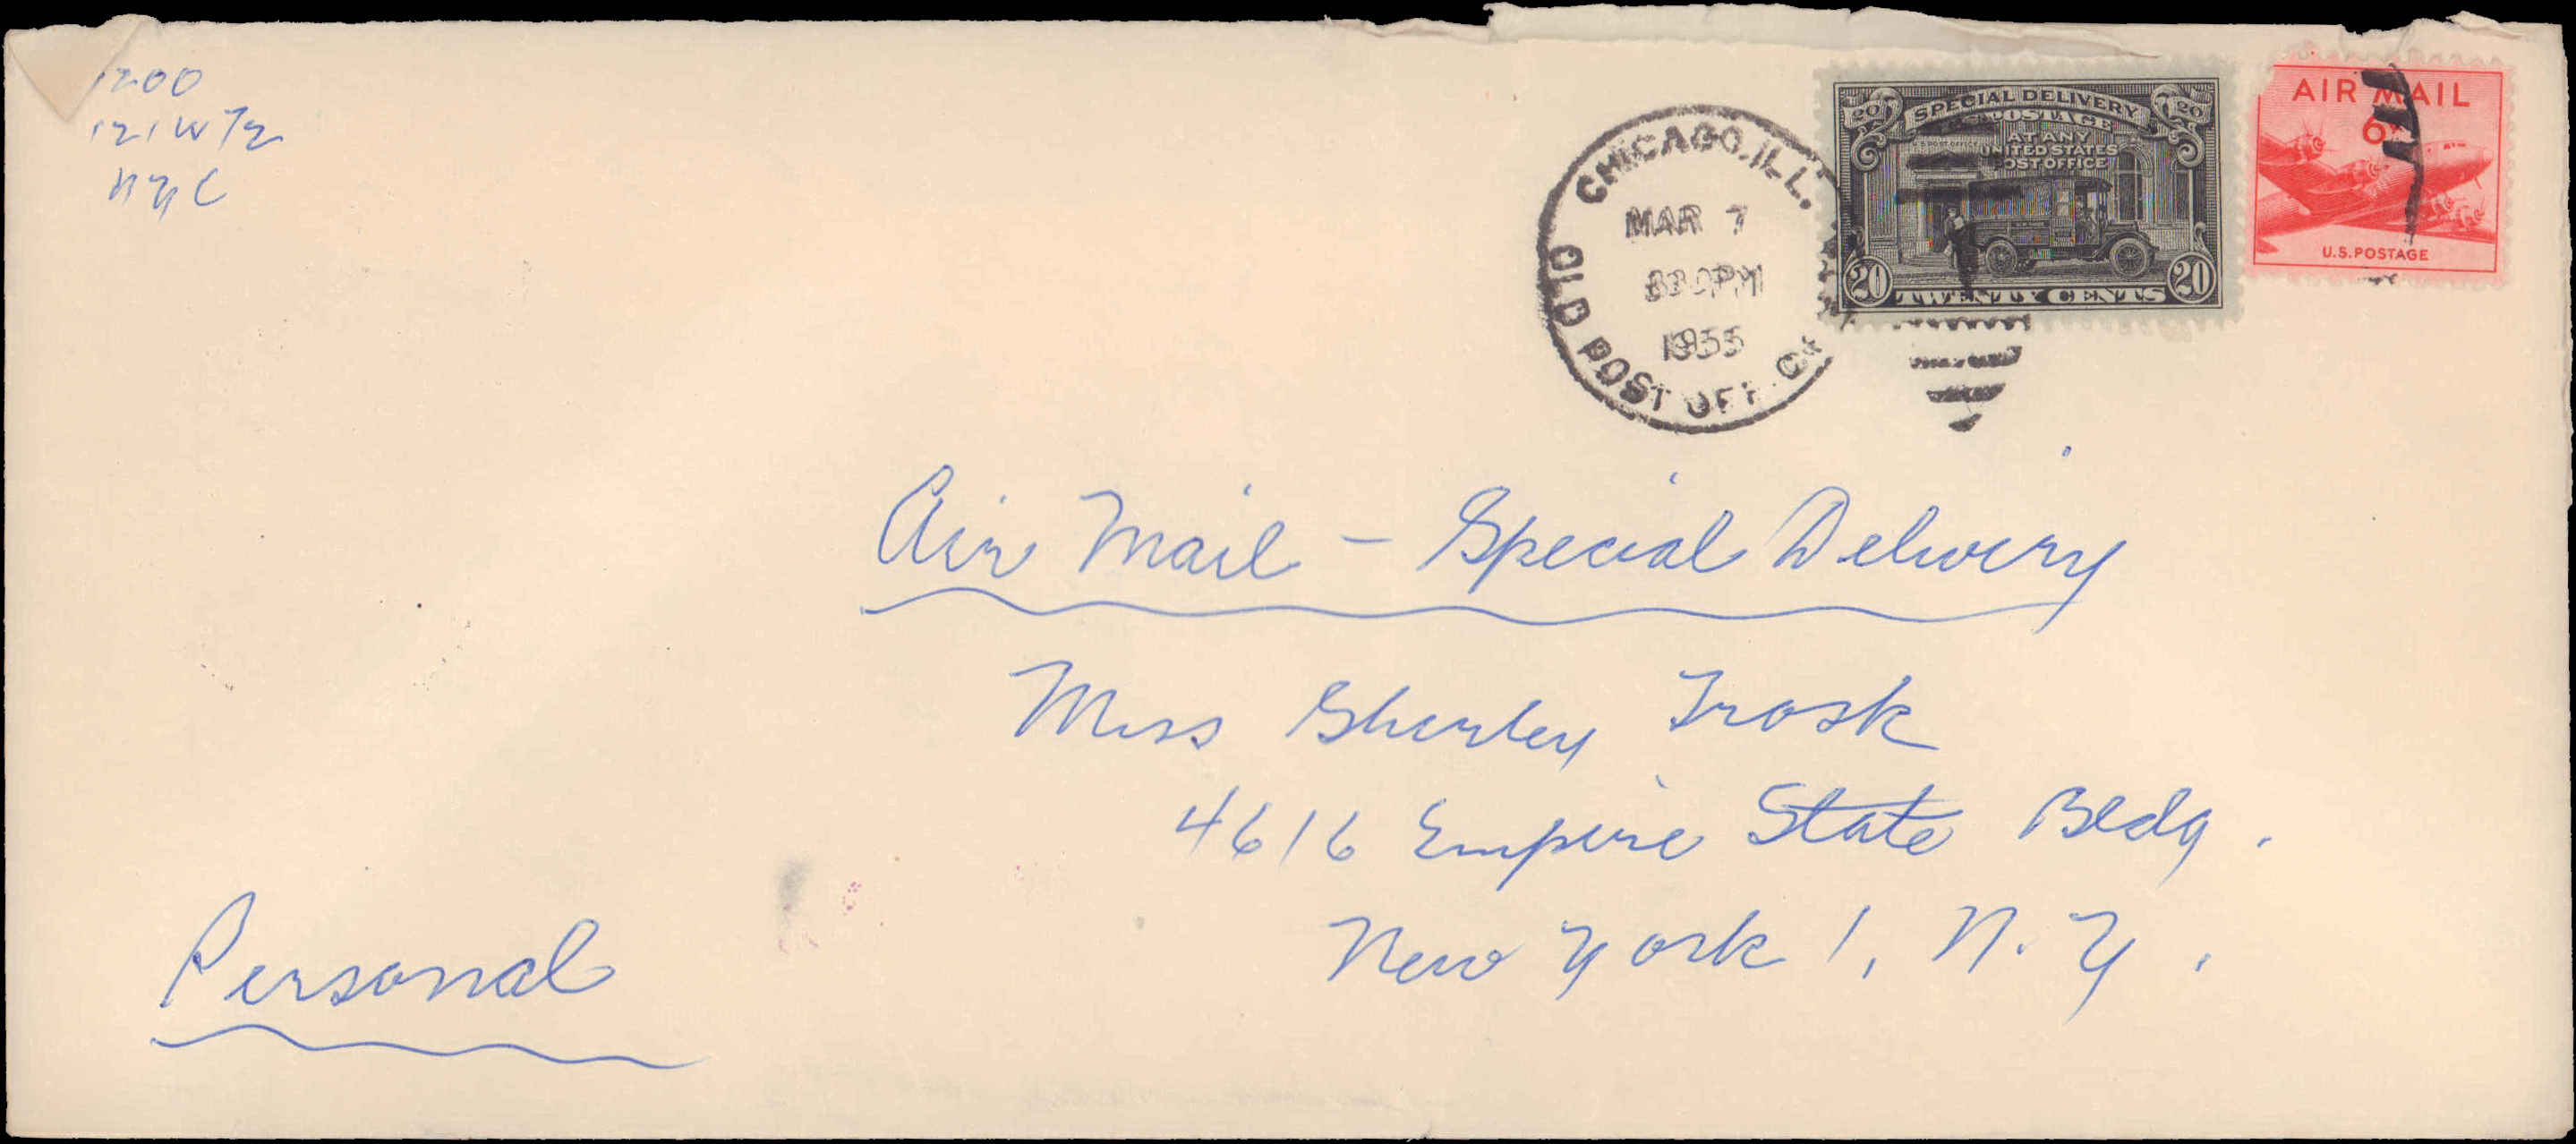 1200
121 W 72
NYC
CHICAGO, ILL.
MAR 7
330 PM
1955
OLD POST OFF.
20 SPECIAL DELIVERY 20
POSTAGE
AT ANY
UNITED STATES
POST OFFICE
20 TWENTY CENTS 20
AIR MAIL
6¢
U.S. POSTAGE
Air Mail – Special Delivery
Miss Shirley Trosk
4616 Empire State Bldg.
New York 1, N.Y.
Personal